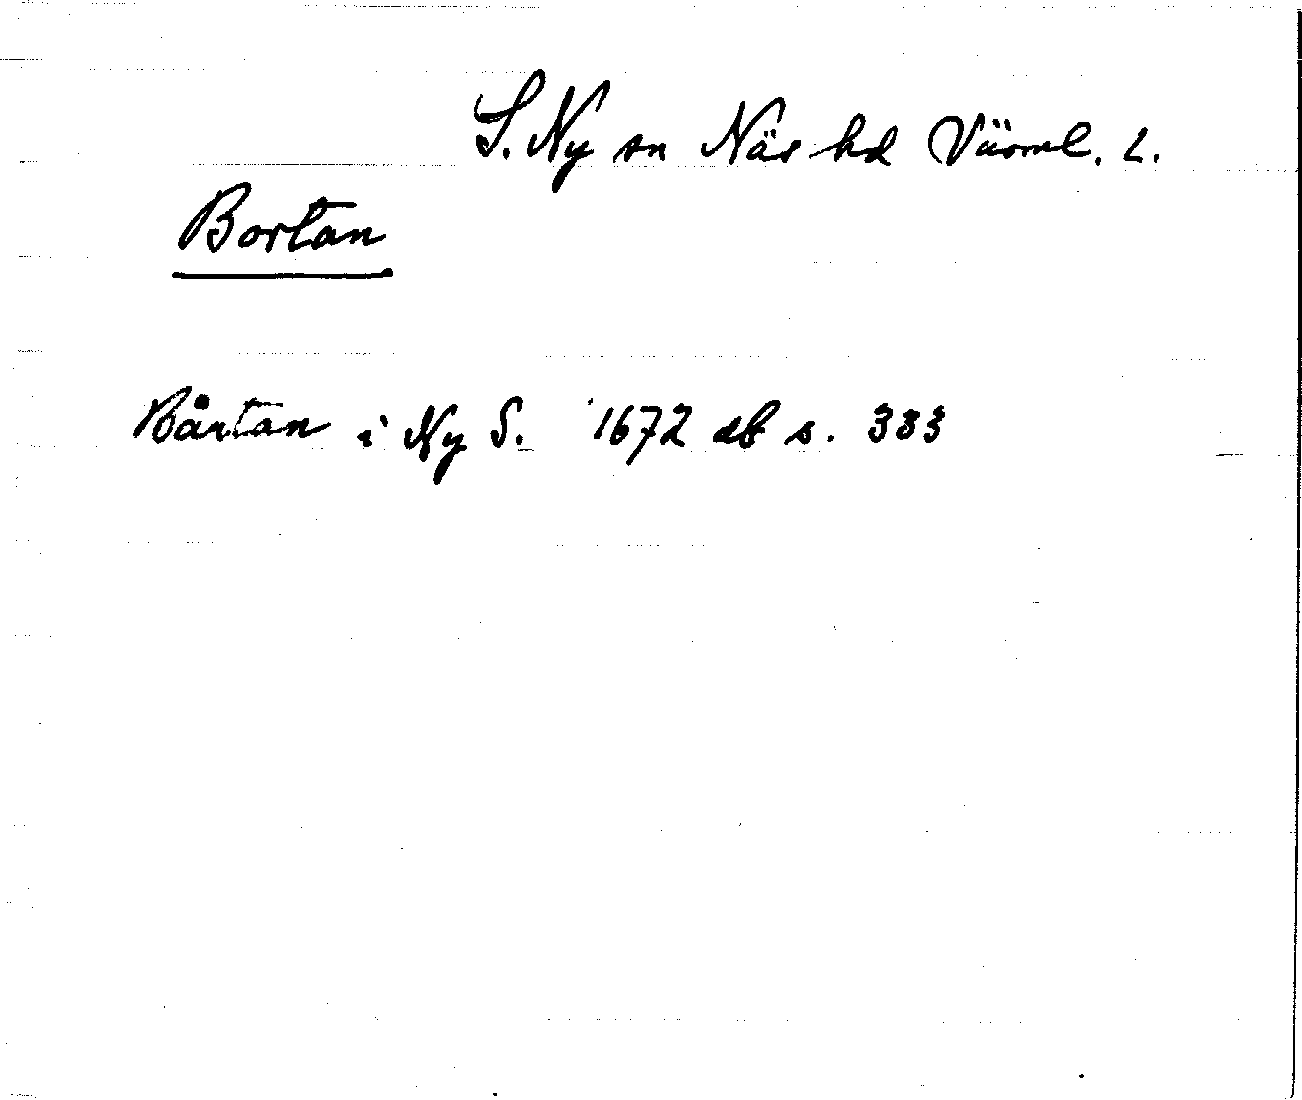 S. Ny sn Näs hd Värml. L.
Bortan
Bårtan i Ny S. 1672 db s. 383